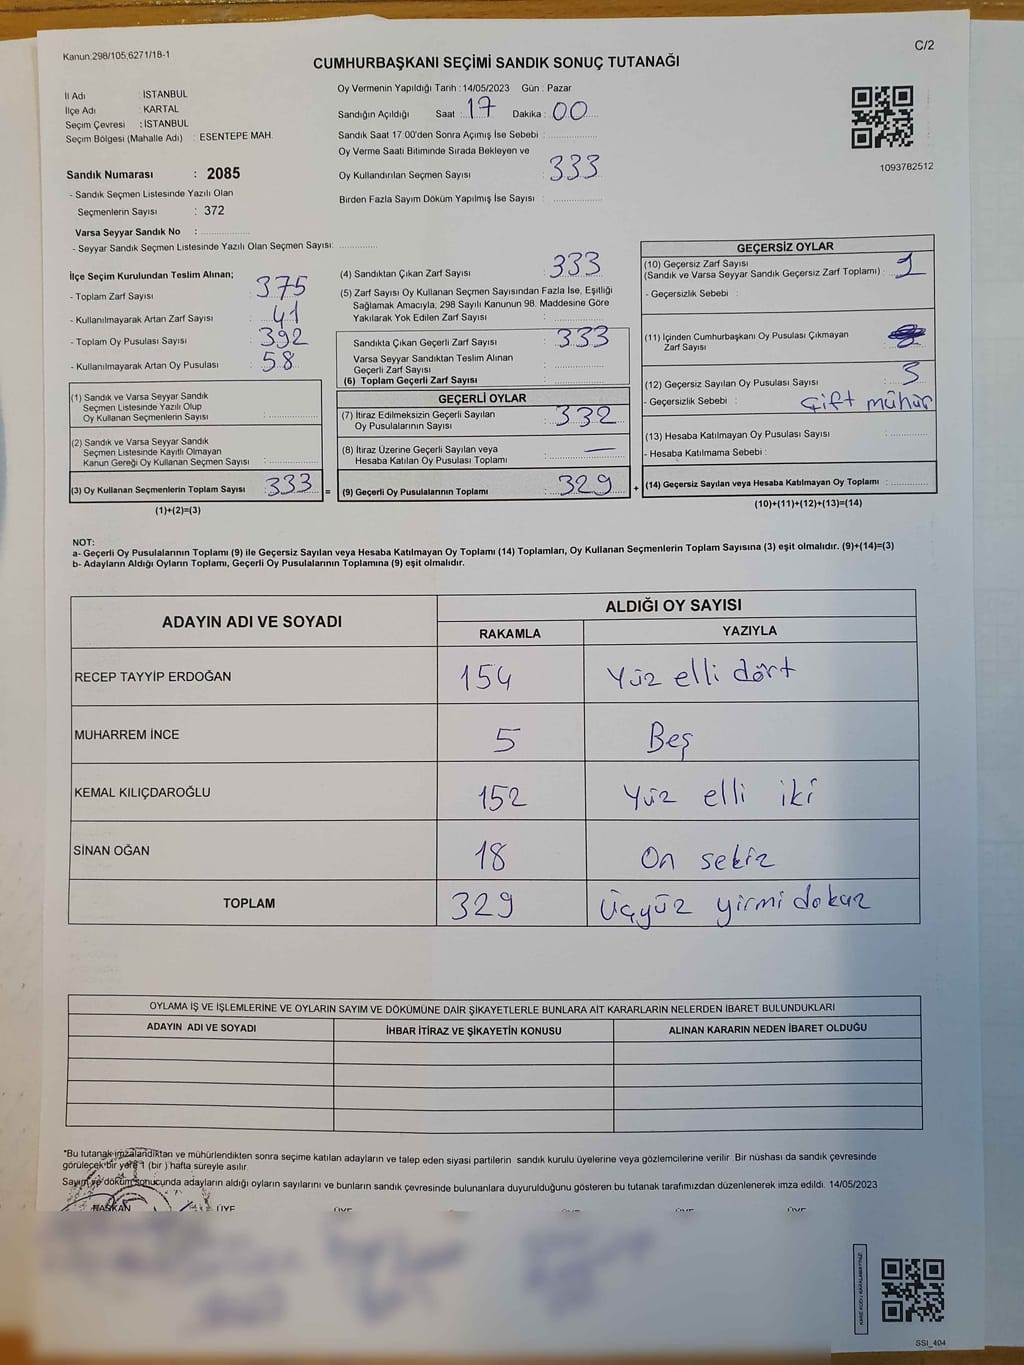 Kanun:298/105;6271/18-1
C/2
CUMHURBAŞKANI SEÇİMİ SANDIK SONUÇ TUTANAĞI
İl Adı : İSTANBUL
İlçe Adı : KARTAL
Seçim Çevresi : İSTANBUL
Seçim Bölgesi (Mahalle Adı) : ESENTEPE MAH.
Oy Vermenin Yapıldığı Tarih : 14/05/2023 Gün : Pazar
Sandığın Açıldığı Saat : 17 Dakika : 00
Sandık Saat 17:00'den Sonra Açımış İse Sebebi :
Oy Verme Saati Bitiminde Sırada Bekleyen ve
Oy Kullandırılan Seçmen Sayısı : 333
Birden Fazla Sayım Döküm Yapılmış İse Sayısı :
1093782512
Sandık Numarası : 2085
- Sandık Seçmen Listesinde Yazılı Olan
Seçmenlerin Sayısı : 372
Varsa Seyyar Sandık No :
- Seyyar Sandık Seçmen Listesinde Yazılı Olan Seçmen Sayısı:
İlçe Seçim Kurulundan Teslim Alınan;
- Toplam Zarf Sayısı : 375
- Kullanılmayarak Artan Zarf Sayısı : 41
- Toplam Oy Pusulası Sayısı : 392
- Kullanılmayarak Artan Oy Pusulası : 58
(1) Sandık ve Varsa Seyyar Sandık
Seçmen Listesinde Yazılı Olup
Oy Kullanan Seçmenlerin Sayısı :
(2) Sandık ve Varsa Seyyar Sandık
Seçmen Listesinde Kayıtlı Olmayan
Kanun Gereği Oy Kullanan Seçmen Sayısı :
(3) Oy Kullanan Seçmenlerin Toplam Sayısı : 333 =
(1)+(2)=(3)
(4) Sandıktan Çıkan Zarf Sayısı : 333
(5) Zarf Sayısı Oy Kullanan Seçmen Sayısından Fazla İse, Eşitliği
Sağlamak Amacıyla, 298 Sayılı Kanunun 98. Maddesine Göre
Yakılarak Yok Edilen Zarf Sayısı :
Sandıkta Çıkan Geçerli Zarf Sayısı : 333
Varsa Seyyar Sandıktan Teslim Alınan
Geçerli Zarf Sayısı :
(6) Toplam Geçerli Zarf Sayısı :
GEÇERLİ OYLAR
(7) İtiraz Edilmeksizin Geçerli Sayılan
Oy Pusulalarının Sayısı : 332
(8) İtiraz Üzerine Geçerli Sayılan veya
Hesaba Katılan Oy Pusulası Toplamı : —
(9) Geçerli Oy Pusulalarının Toplamı : 329 +
GEÇERSİZ OYLAR
(10) Geçersiz Zarf Sayısı
(Sandık ve Varsa Seyyar Sandık Geçersiz Zarf Toplamı) : 1
- Geçersizlik Sebebi :
(11) İçinden Cumhurbaşkanı Oy Pusulası Çıkmayan
Zarf Sayısı
(12) Geçersiz Sayılan Oy Pusulası Sayısı : 3
- Geçersizlik Sebebi : Çift mühür
(13) Hesaba Katılmayan Oy Pusulası Sayısı :
- Hesaba Katılmama Sebebi :
(14) Geçersiz Sayılan veya Hesaba Katılmayan Oy Toplamı :
(10)+(11)+(12)+(13)=(14)
NOT:
a- Geçerli Oy Pusulalarının Toplamı (9) ile Geçersiz Sayılan veya Hesaba Katılmayan Oy Toplamı (14) Toplamları, Oy Kullanan Seçmenlerin Toplam Sayısına (3) eşit olmalıdır. (9)+(14)=(3)
b- Adayların Aldığı Oyların Toplamı, Geçerli Oy Pusulalarının Toplamına (9) eşit olmalıdır.
ADAYIN ADI VE SOYADI
ALDIĞI OY SAYISI
RAKAMLA YAZIYLA
RECEP TAYYİP ERDOĞAN 154 Yüz elli dört
MUHARREM İNCE 5 Beş
KEMAL KILIÇDAROĞLU 152 Yüz elli iki
SİNAN OĞAN 18 On sekiz
TOPLAM 329 Üçyüz yirmi dokuz
OYLAMA İŞ VE İŞLEMLERİNE VE OYLARIN SAYIM VE DÖKÜMÜNE DAİR ŞİKAYETLERLE BUNLARA AİT KARARLARIN NELERDEN İBARET BULUNDUKLARI
ADAYIN ADI VE SOYADI İHBAR İTİRAZ VE ŞİKAYETİN KONUSU ALINAN KARARIN NEDEN İBARET OLDUĞU
*Bu tutanak imzalandıktan ve mühürlendikten sonra seçime katılan adayların ve talep eden siyasi partilerin sandık kurulu üyelerine veya gözlemcilerine verilir. Bir nüshası da sandık çevresinde
görülecek bir yere 1 (bir ) hafta süreyle asılır.
Sayım ve döküm sonucunda adayların aldığı oyların sayılarını ve bunların sandık çevresinde bulunanlara duyurulduğunu gösteren bu tutanak tarafımızdan düzenlenerek imza edildi. 14/05/2023
BAŞKAN ÜYE ÜYE ÜYE ÜYE ÜYE
KARE KODU KARALAMAYINIZ.
SSI_404